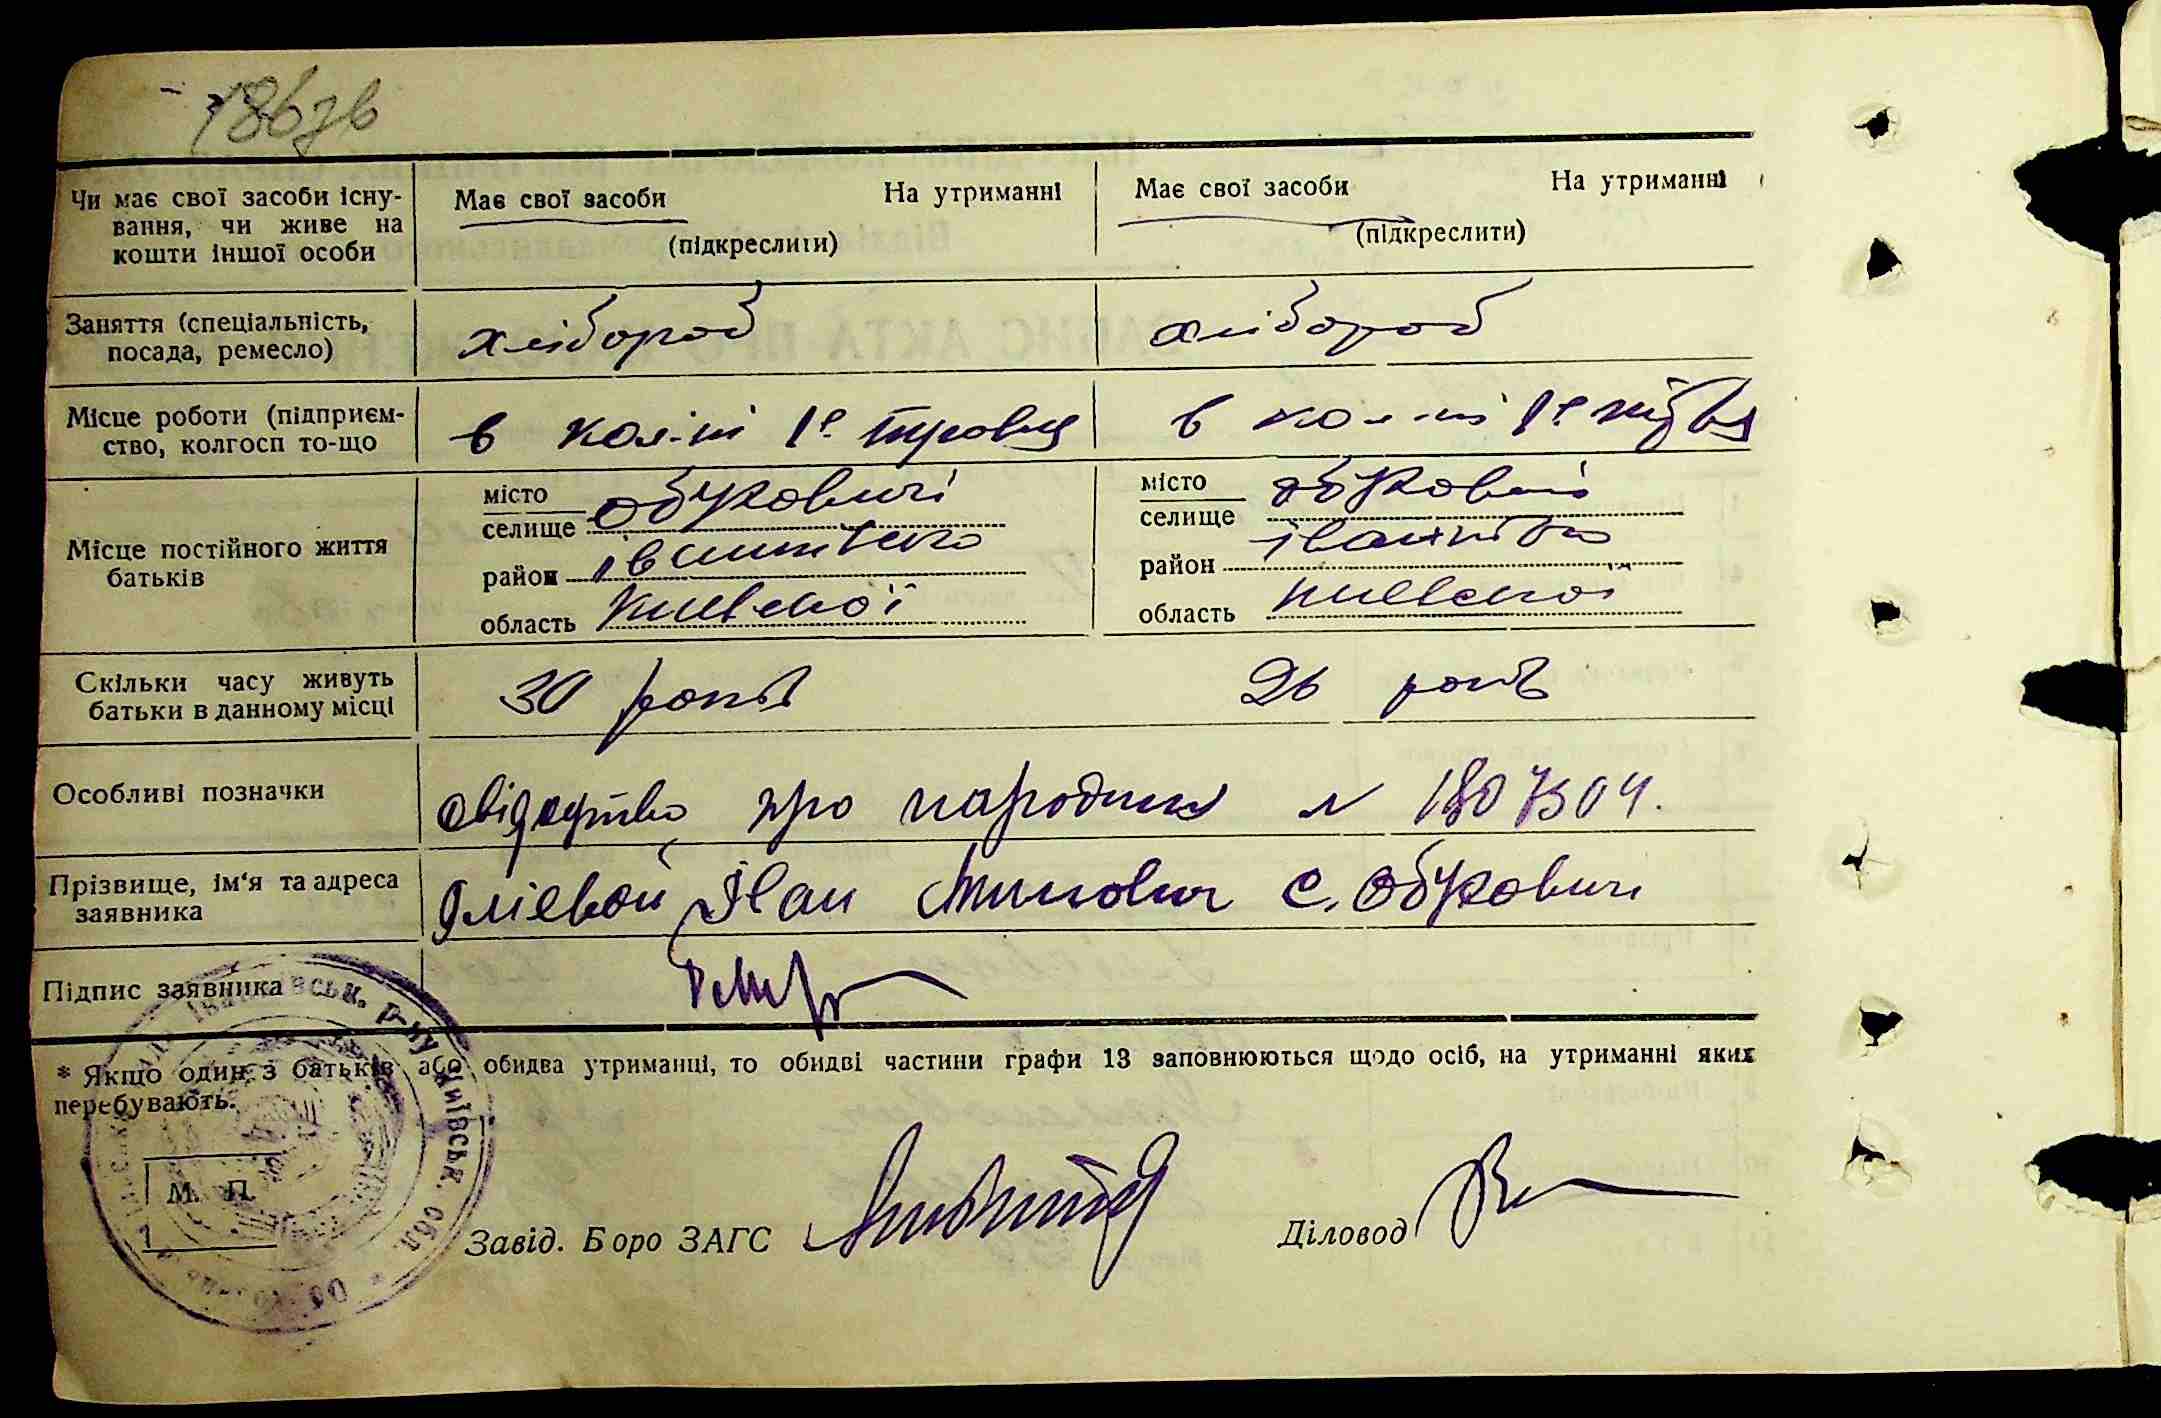 Чи має свої засоби існу-
вання, чи живе на
кошти іншої особи
Має свої засоби На утриманні
(підкреслити)
Має свої засоби На утриманні
(підкреслити)
Заняття (спеціальність,
посада, ремесло)
хлібороб
хлібороб
Місце роботи (підприєм-
ство, колгосп то-що
в кол-пі 1е травня
в кол-пі 1е
Місце постійного життя
батьків
місто
селище Обуховичі
район
область Киевської
місто
селище Обуховичі
район
область Киевської
Скільки часу живуть
батьки в данному місці
30 років
26 років
Особливі позначки
свідоцтво про народження N 1807304.
Прізвище, ім'я та адреса
заявника
Іван с. Обуховичі
Підпис заявника
* Якщо один з батьків або обидва утриманці, то обидві частини графи 13 заповнюються щодо осіб, на утриманні яких
перебувають.
М. П.
Завід. Боро ЗАГС
Діловод
Іванківськ. р-ну Київськ. обл.